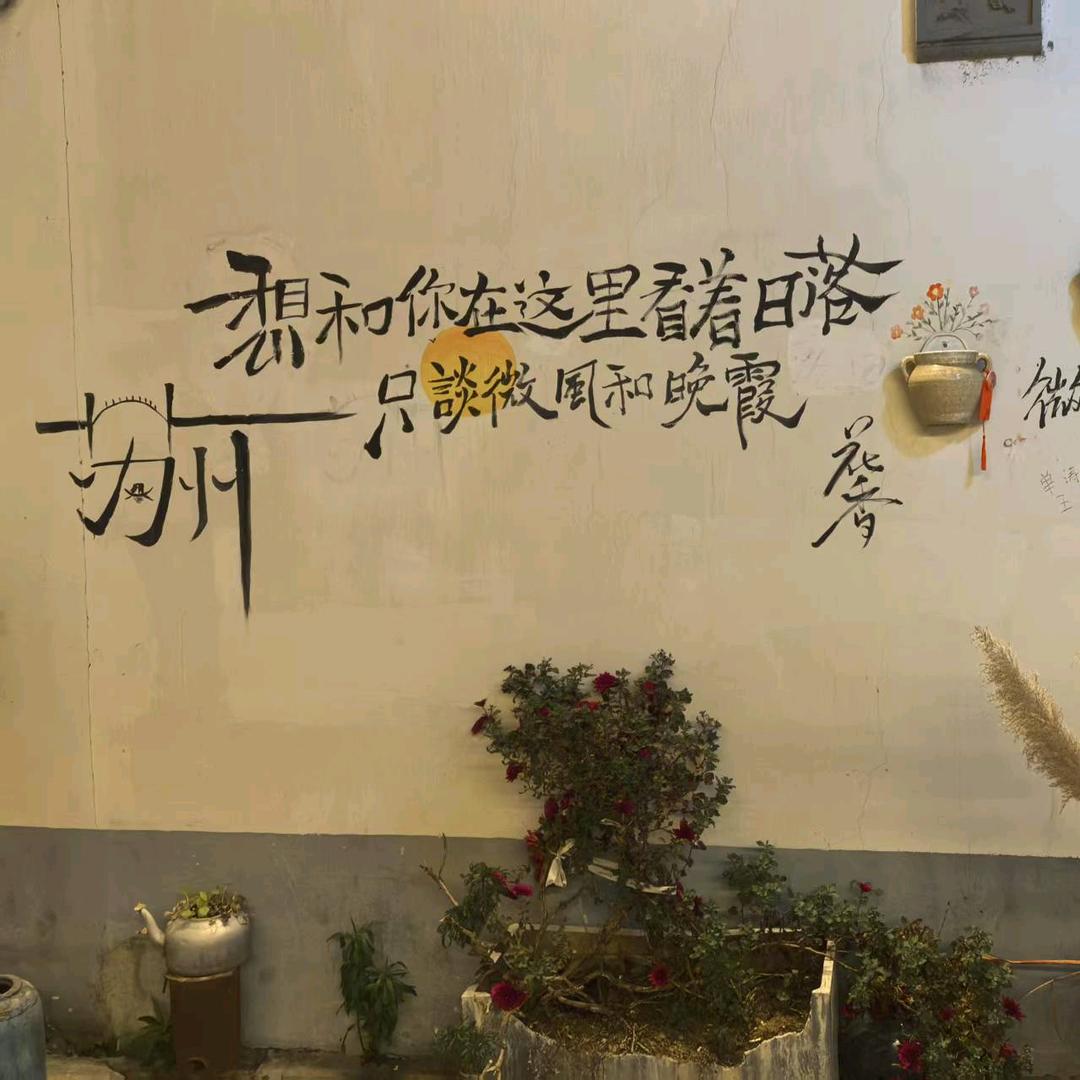 想和你在这里看着日落
只談微風和晚霞
苏州
花香